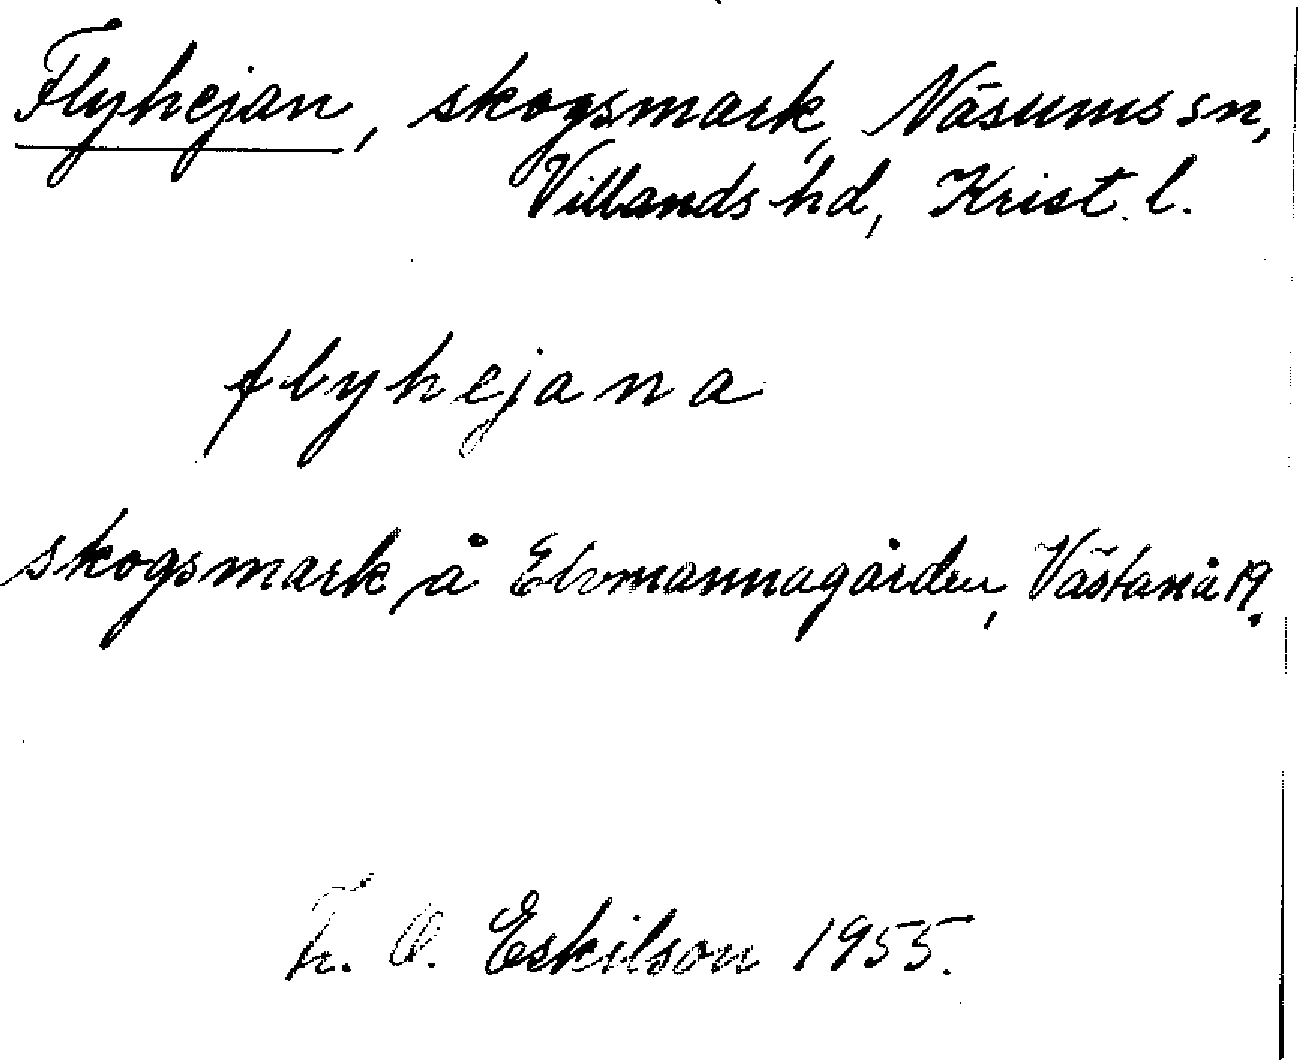 Flyhejan, skogsmark, Näsums sn,
Villands hd, Krist. l.
flyhejana
skogsmark å Elvmannagården, Västanå 19.
O. Eskilson 1955.